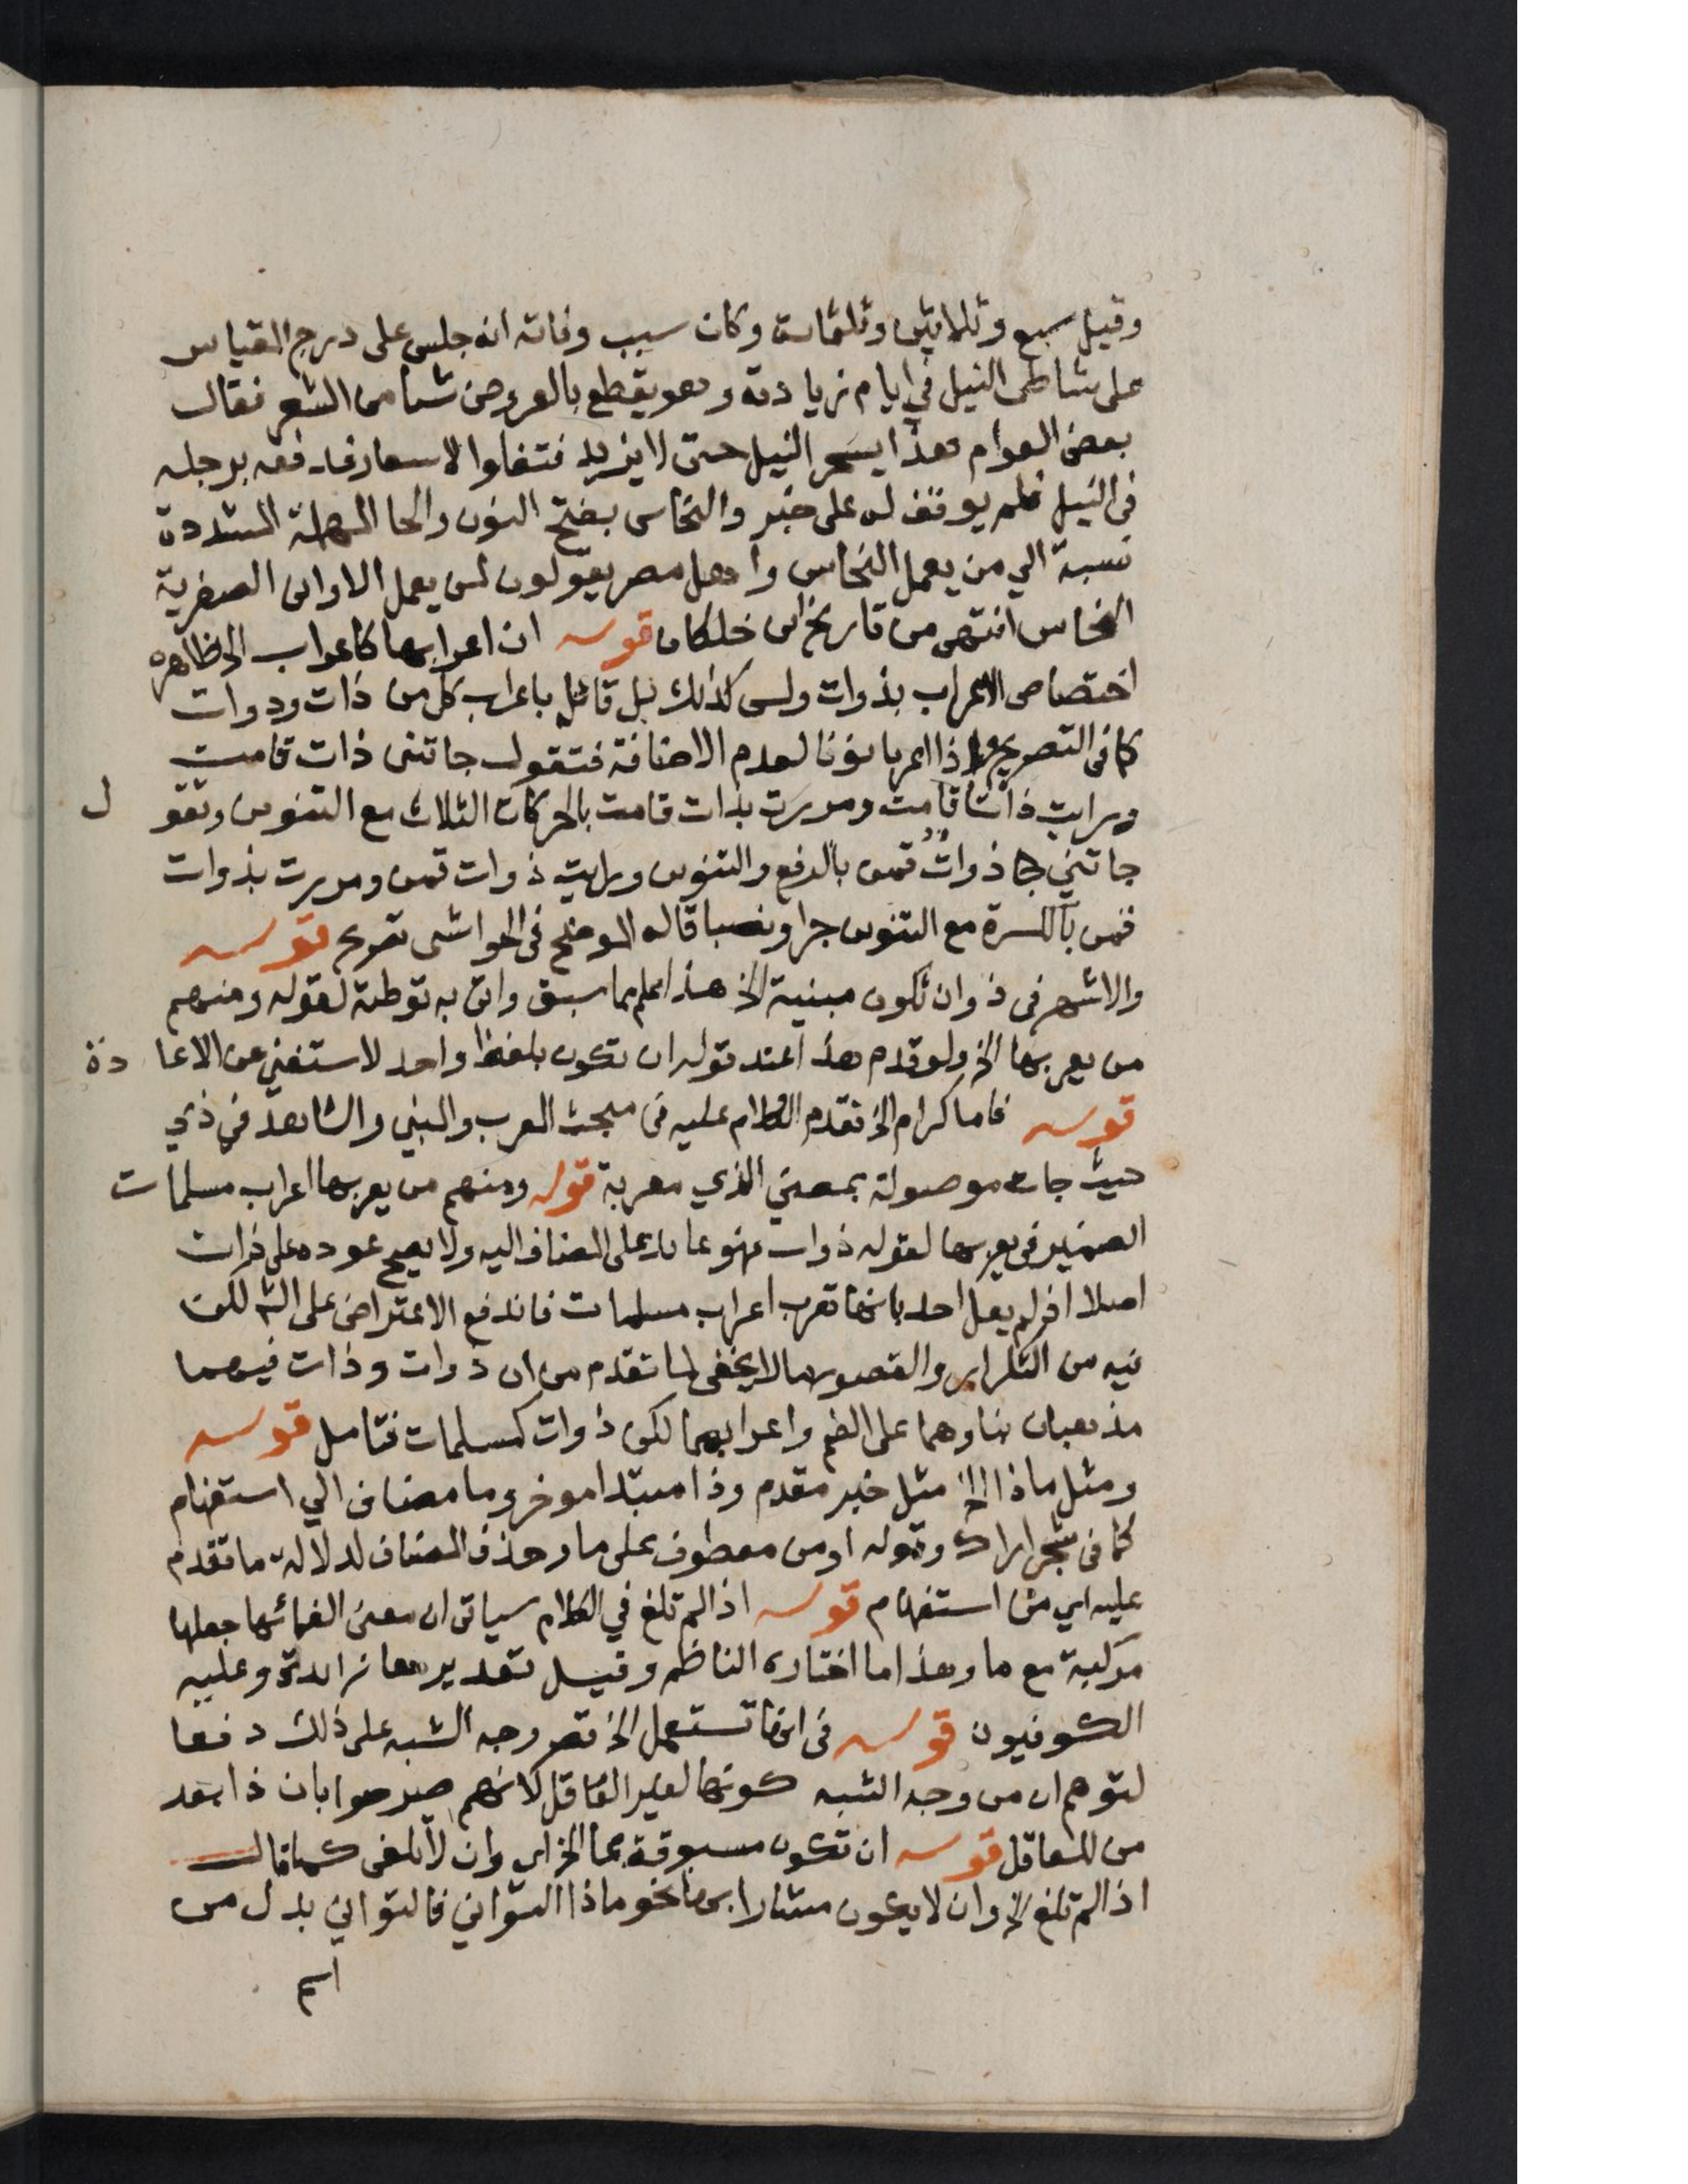 وقيل سبع وثلاثين وثلثماية وكان سبب وفاته انه جلس على درج المقياس
على شاطى النيل في ايام زيادته وهو يقطع بالعروض شيا من الشعر فقال
بعض العوام هذا يسحر النيل حتى لا يزيد فتغلوا الاسعار فدفعه برجله
فى النيل فلم يوقف له على خبر والنحاس بفتح النون والحا المهملة المشددة
نسبة الي من يعمل النحاس واهل مصر يقولون لمن يعمل الاوانى الصفرية
النحاس انتهى من تاريخ ابن خلكان قوله ان اعرابها كاعراب الخ ظاهره
اختصاص الاعراب بذوات وليس كذلك بل قائل باعراب كل من ذات وذوات
كما فى التصريح واذا اعربا نونا لعدم الاضافة فتقول جاتنى ذات قامت
ورايت ذاتا قامت ومررت بذات قامت بالحركات الثلاث مع التنوين وتقول
جاتني ذوات قمن بالرفع والتنوين ورايت ذوات قمن ومررت بذوات
قمن بالكسرة مع التنوين جرا ونصبا قاله الموضح فى الحواشى تصريح قوله
والاشهر فى ذو ان تكون مبنية الخ هذا علم مما سبق واتى به توطئة لقوله ومنهم
من يعربها الخ ولو قدم هذا عند قوله ان تكون بلفظ واحد لاستغني عن الاعادة
قوله فاما كرام الخ تقدم الكلام عليه فى مبحث المعرب والمبني والشاهد في ذي
حيث جات موصولة بمعني الذي معربة قوله ومنهم من يعربها اعراب مسلمات
الضمير فى يعربها لقوله ذوات فهو عائد على المضاف اليه ولا يصح عوده على ذات
اصلا اذ لم يقل احد بانها تعرب اعراب مسلمات فاندفع الاعتراض على الش لكن
فيه من التكرار والقصور ما لا يخفى لما تقدم من ان ذوات وذات فيهما
مذهبان بناوهما على الضم واعرابهما لكن ذوات كمسلمات فتامل قوله
ومثل ماذا الخ مثل خبر مقدم وذا مبتدا موخر وما مضاف الي استفهام
كما فى شجر اراك وقوله او من معطوف على ما وحذف المضاف لدلالة ما تقدم
عليه اي من استفهام قوله اذا لم تلغ في الكلام سياتى ان معنى الغائها جعلها
مركبة مع ما وهذا ما اختاره الناظم وقيل تقديرها زائدة وعليه
الكوفيون قوله فى انها تستعمل الخ قصر وجه الشبه على ذلك دفعا
لتوهم ان من وجه الشبه كونها لغير العاقل لانهم صرحوا بان ذا بعد
من للعاقل قوله ان تكون مسبوقة بما الخ اي وان لا تلغى كما قال
اذا لم تلغ الخ وان لا يكون مشارا بها نحو ماذا التواني فالتواني بدل من
اسم